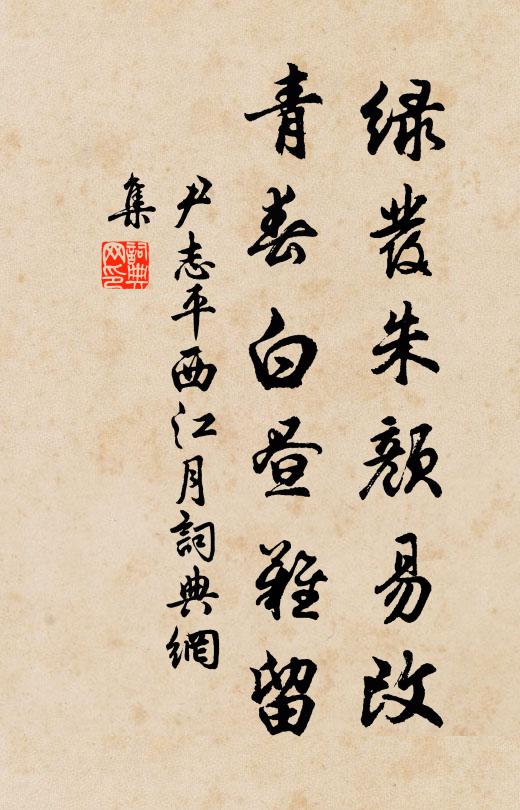 緑发朱顔易改
青春白昼難留
尹志平西江月詞典網
集
詞典网印